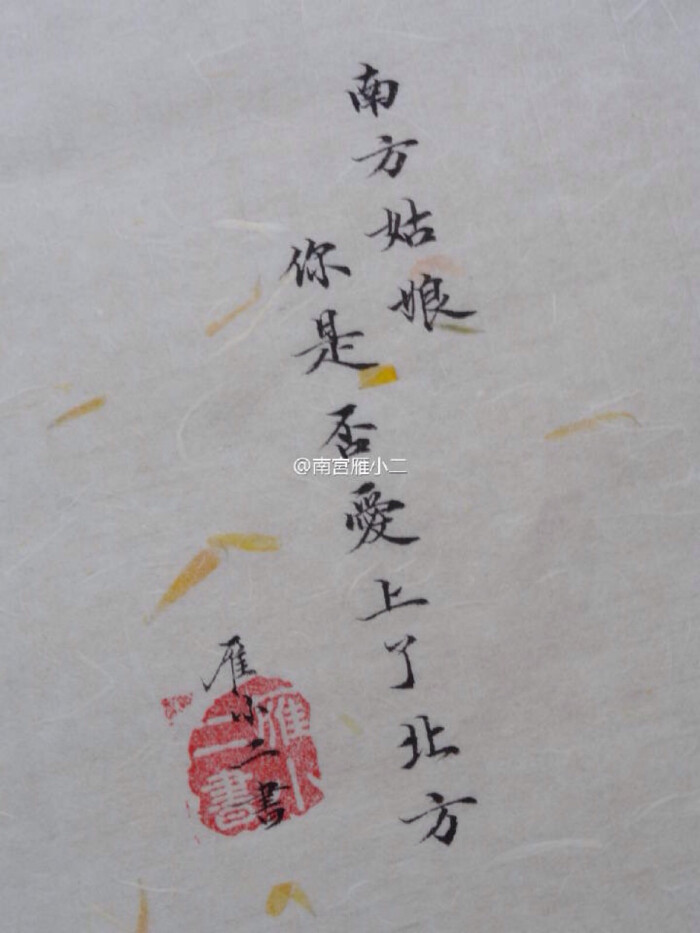 南方姑娘
你是否愛上了北方
雁小二書
雁小二書
@南宮雁小二